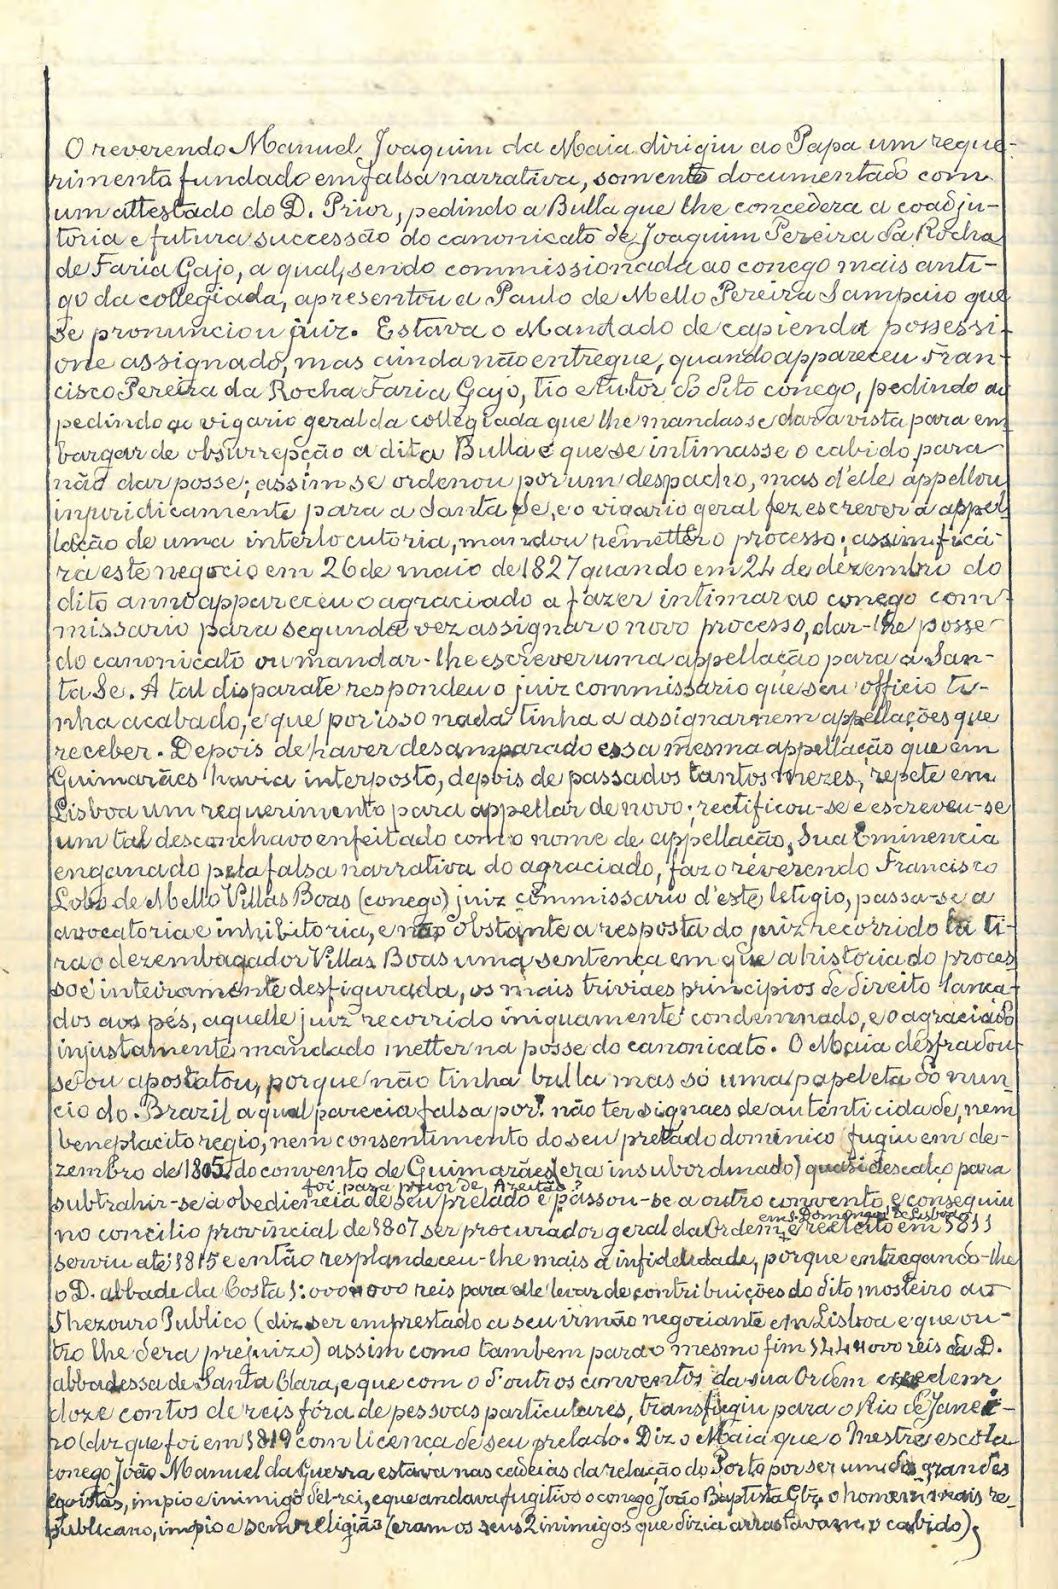 O reverendo Manuel Joaquim da Maia dirigiu ao Papa um reque-
rimento fundado em falsa narrativa, somente documentado com
um attestado do D. Prior, pedindo a Bulla que lhe concedera a coadju-
toria e futura successão do canonicato de Joaquim Pereira da Rocha
de Faria Gajo, a qual, sendo commissionada ao conego mais anti-
go da collegiada, apresentou a Paulo de Mello Pereira Sampaio que
se pronunciou juiz. Estava o Mandado de capienda possessi-
one assignado, mas ainda não entregue, quando appareceu Fran-
cisco Pereira da Rocha Faria Gajo, tio e tutor do dito conego, pedindo ao
pedindo ao vigario geral da collegiada que lhe mandasse dar a vista para em
bargar de obsurrepção a dita Bulla e que se intimasse o cabido para
não dar posse; assim se ordenou por um despacho, mas d'elle appellou
injuridicamente para a Santa Se, e o vigario geral fez escrever a appel-
lação de uma interlocutoria, mandou remetter o processo; assim ficá-
ra este negocio em 26 de maio de 1827 quando em 24 de dezembro do
dito anno appareceu o agraciado a fazer intimar ao conego com-
missario para segunda vez assignar o novo processo, dar-lhe posse
do canonicato ou mandar-lhe escrever uma appellação para a San-
ta Se. A tal disparate respondeu o juiz commissario que seu officio ti-
nha acabado, e que por isso nada tinha a assignar nem appellações que
receber. Depois de haver desamparado essa mesma appellação que em
Guimarães havia interposto, depois de passados tantos mezes, repete em
Lisboa um requerimento para appellar de novo; rectificou-se e escreveu-se
um tal desconchavo enfeitado com o nome de appellação, Sua Eminencia
enganado pela falsa narrativa do agraciado, faz o reverendo Francisco
Lobo de Mello Villas Boas (conego) juiz commissario d'este letigio, passa-se a
avocatoria e inhibitoria, e não obstante a resposta do juiz recorrido lá ti-
ra o dezembagador Villas Boas uma sentença em que a historia do proces
so é inteiramente desfigurada, os mais triviaes principios de direito lança-
dos aos pés, aquelle juiz recorrido iniquamente condemnado, e o agraciado
injustamente mandado metter na posse do canonicato. O Maia desfradou-
se ou apostatou, porque não tinha bulla mas só uma papeleta do nun-
cio do Brazil a qual parecia falsa por não ter signaes de autenticidade, nem
beneplacito regio, nem consentimento do seu prelado dominico fugiu em de-
zembro de 1805 do convento de Guimarães (era insubordinado) quasi descalço para
foi para prior de Azeitão?
subtrahir-se á obediencia de seu prelado e passou-se a outro convento e conseguiu
em S. Domingos de Lisboa
no concilio provincial de 1807 ser procurador geral da Ordem, e reeleito em 1811
serviu até 1815 e então resplandeceu-lhe mais a infidelidade, porque entregando-lhe
o D. abbade da Costa 1:000$000 reis para elle levar de contribuições do dito mosteiro ao
Thezouro Publico (diz ser emprestado a seu irmão negociante em Lisboa e que ou-
tro lhe dera prejuizo) assim como tambem para o mesmo fim 144$000 réis da D.
abbadessa de Santa Clara, e que com o d'outros conventos da sua Ordem excedem
doze contos de reis fóra de pessoas particulares, transfugiu para o Rio de Janei-
ro (diz que foi em 1819 com licença de seu prelado. Diz o Maia que o Mestre escola
conego João Manuel da Guerra estava nas cadeias da relação do Porto por ser um dos grandes
egoistas, impio e inimigo d'el-rei, e que andava fugitivo o conego João Baptista Glz. o homem mais re-
publicano, impio e sem religião (eram os seus 2 inimigos que dizia arrastavam o cabido),